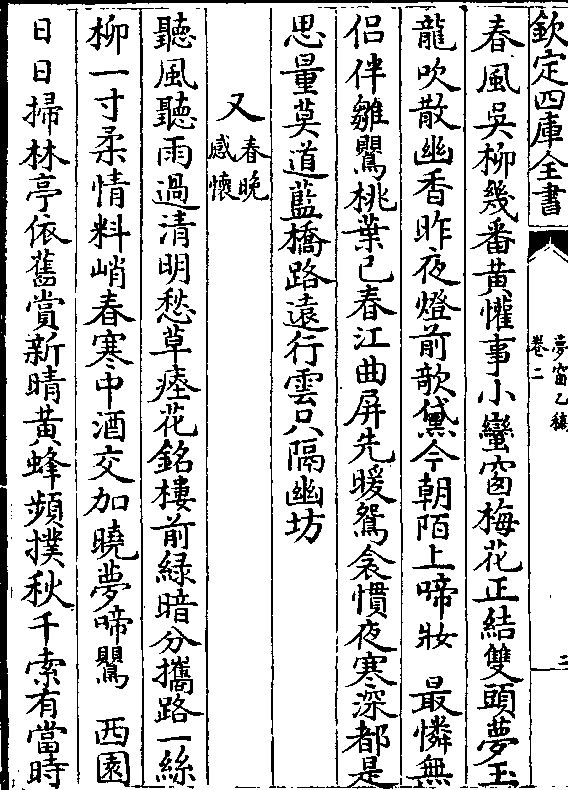 欽定四庫全書
夢窗乙稿
卷二
二
春風吳柳幾番黃懽事小蠻窗梅花正結雙頭夢玉
龍吹散幽香昨夜燈前歌黛今朝陌上啼妝　最憐無
侣伴雛鶯桃葉已春江曲屏先暖鴛衾慣夜寒深都是
思量莫道藍橋路遠行雲只隔幽坊
又春晚感懷
聽風聽雨過清明愁草瘞花銘樓前綠暗分攜路一絲
柳一寸柔情料峭春寒中酒交加曉夢啼鶯　西園
日日掃林亭依舊賞新晴黃蜂頻撲秋千索有當時